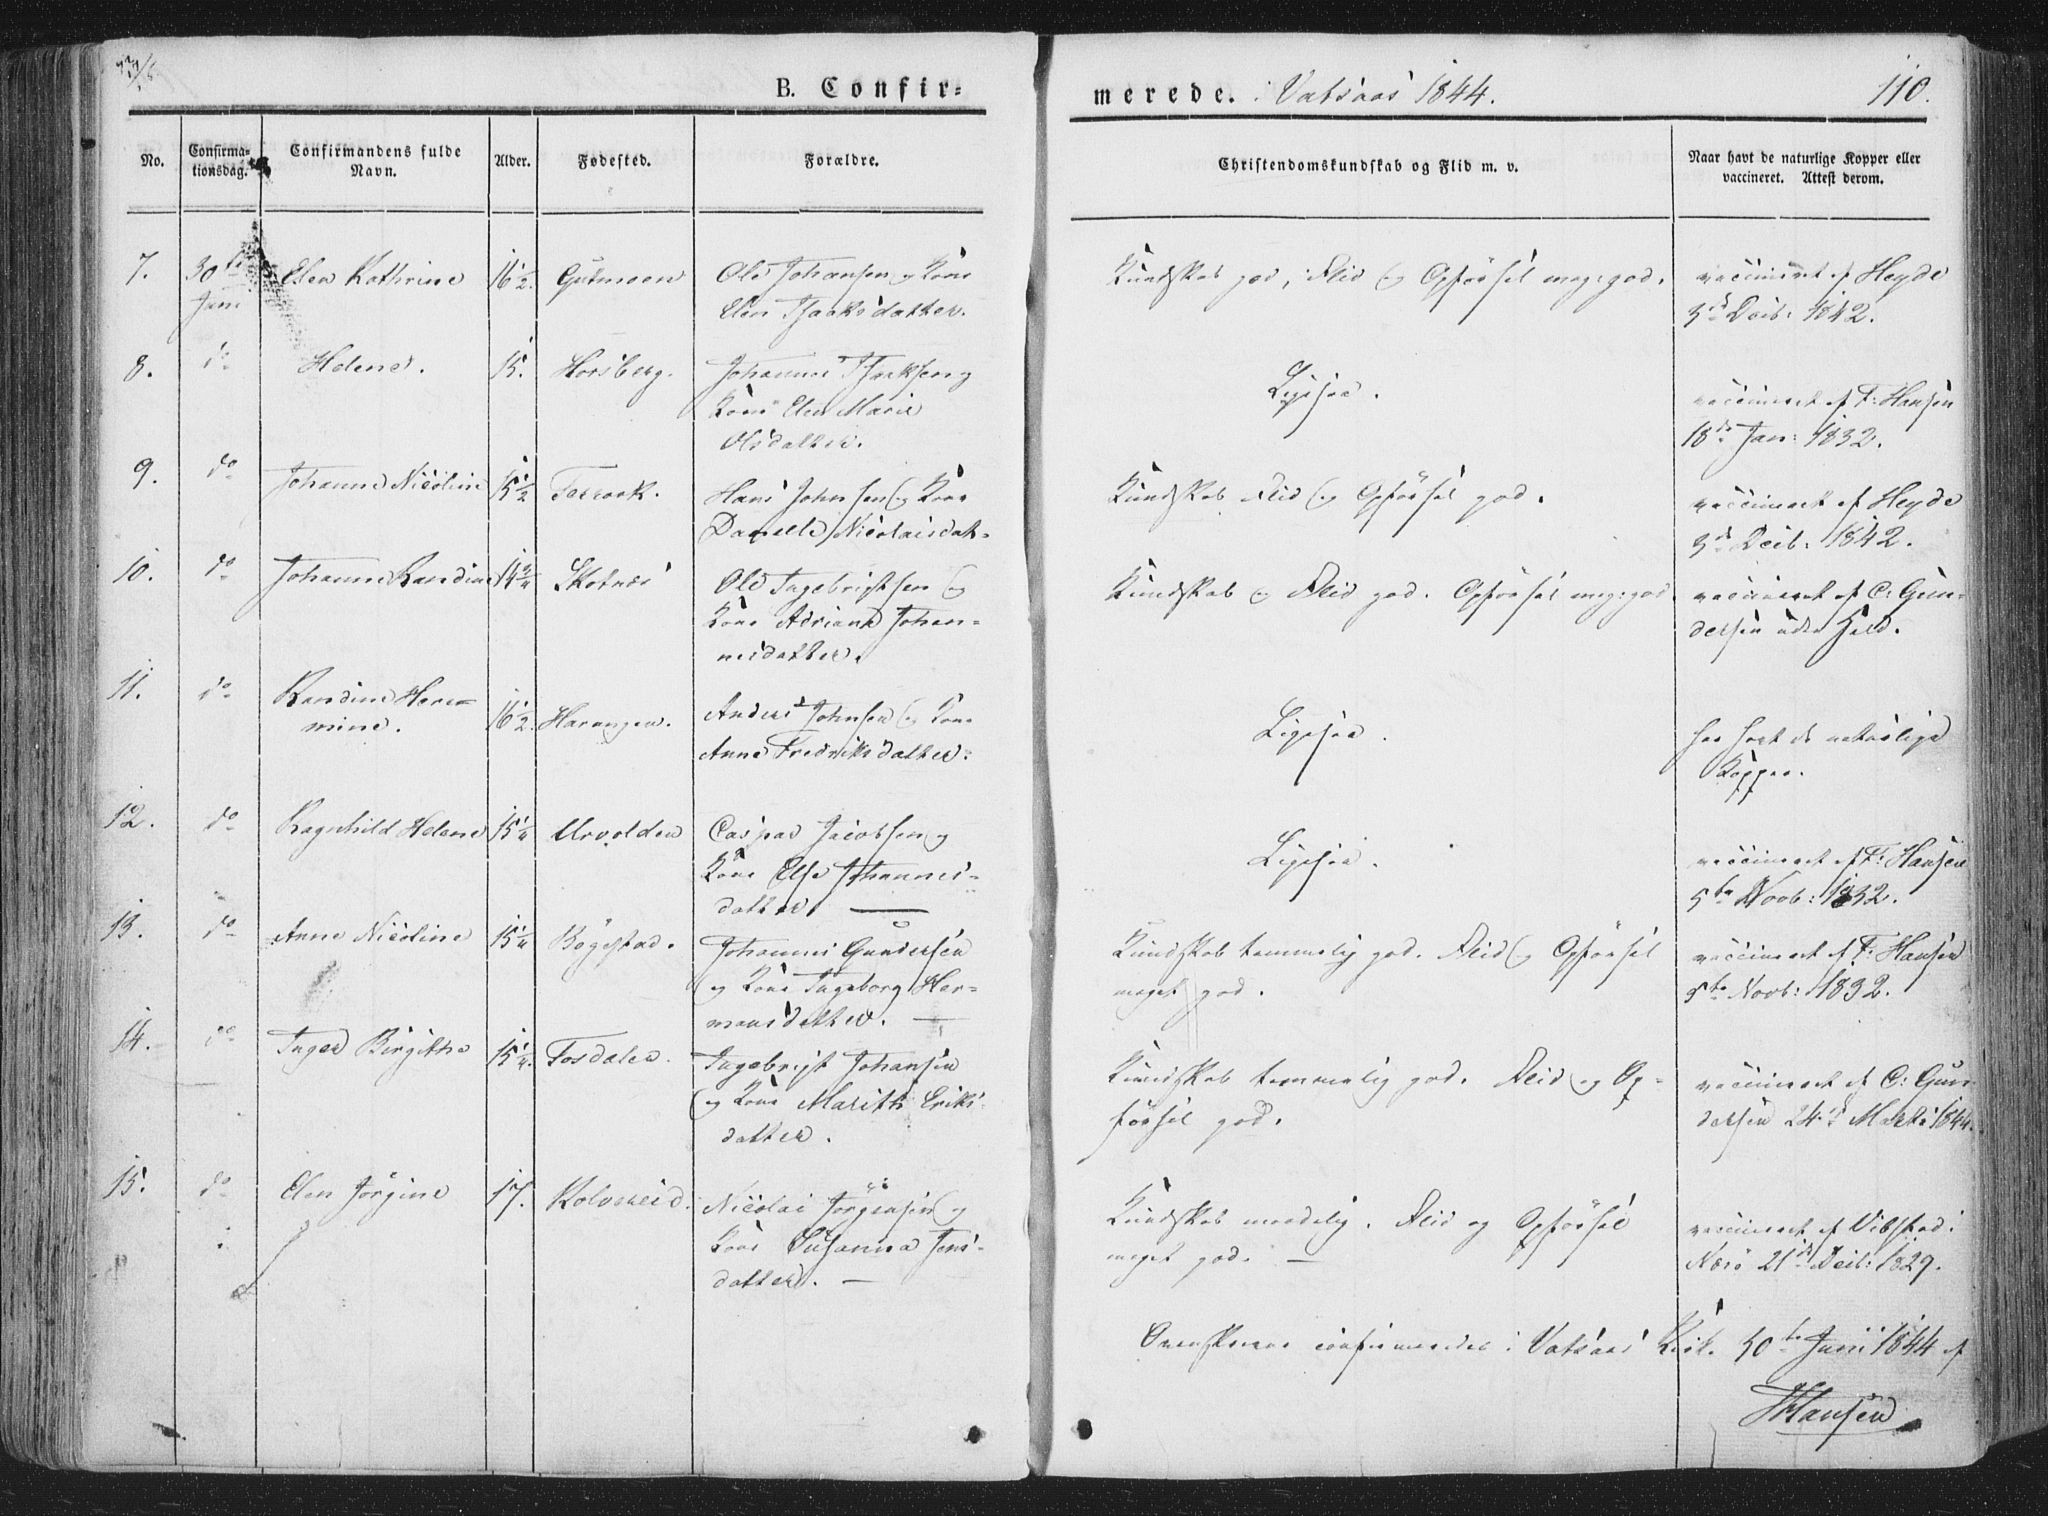 B. Confir-
merede. i Vatsaas 1844.
110.
No.
Confirma-
tionsdag.
Confirmandens fulde
Navn.
Alder.
Fødested.
Forældre.
Christendomskundskab og Flid m. v.
Naar havt de naturlige Kopper eller
vaccineret. Attest derom.
7. 30te Elen Kathrine 16½. Gutmoen Ole Johansen og Kone Kundskab god, Flid og Opførsel meg: god. vaccineret af Heyde
Juni Elen Isaksdatter. 3de Decb: 1842.
8. do Helene. 15. Horsberg. Johannes Isaksen og Ligesaa. vaccineret af F: Hansen
Kone Elen Marie 18de Jan: 1832.
Olsdatter.
9. do Johanne Nicoline 15½ Terraak. Hans Johnsen og Kone Kundskab Flid og Opførsel god. vaccineret af Heyde
Danselle Nicolaisdat- 3de Decb: 1842.
10. do Johanne Randine 14¾ Skotnes Ole Ingebrigtsen og Kundskab og Flid god. Opførsel meg: god. vaccineret af C: Gun-
Kone Adriane Johan- dersen uden Held.
nesdatter.
11. do Randine Here- 16½. Harangen. Anders Johnsen og Kone Ligesaa. har havt de naturlige
mine. Anne Fredriksdatter: Kopper.
12. do Ragnhild Helene 15¼ Urvolden Caspar Jacobsen og Ligesaa. vaccineret af F: Hansen
Kone Else Johannes- 5te Novb: 1832.
datter.
13. do Anne Nicoline 15¼ Bøgestad. Johannes Gundersen Kundskab temmelig god. Flid og Opførsel vaccineret af F: Hansen
og Kone Ingeborg Her- meget god. 5te Novb: 1832.
mansdatter.
14. do Inger Birgithe 15¼. Tosdalen. Ingebrigt Johansen Kundskab temmelig god. Flid og Op- vaccineret af C: Gun-
og Kone Marith Eriks- førsel god. dersen 24de Marts 1844.
datter.
15. do Elen Jørgine 17. Kolvereid. Nicolai Jørgensen og Kundskab maadelig. Flid og Opførsel vaccineret af Vibstad i
Kone Susanna Jens- meget god. Nærø 21de Decb: 1829.
datter.
Ovenskrevne confirmerede i Vatsaas Kirk. 30te Juni 1844 af
FHansen